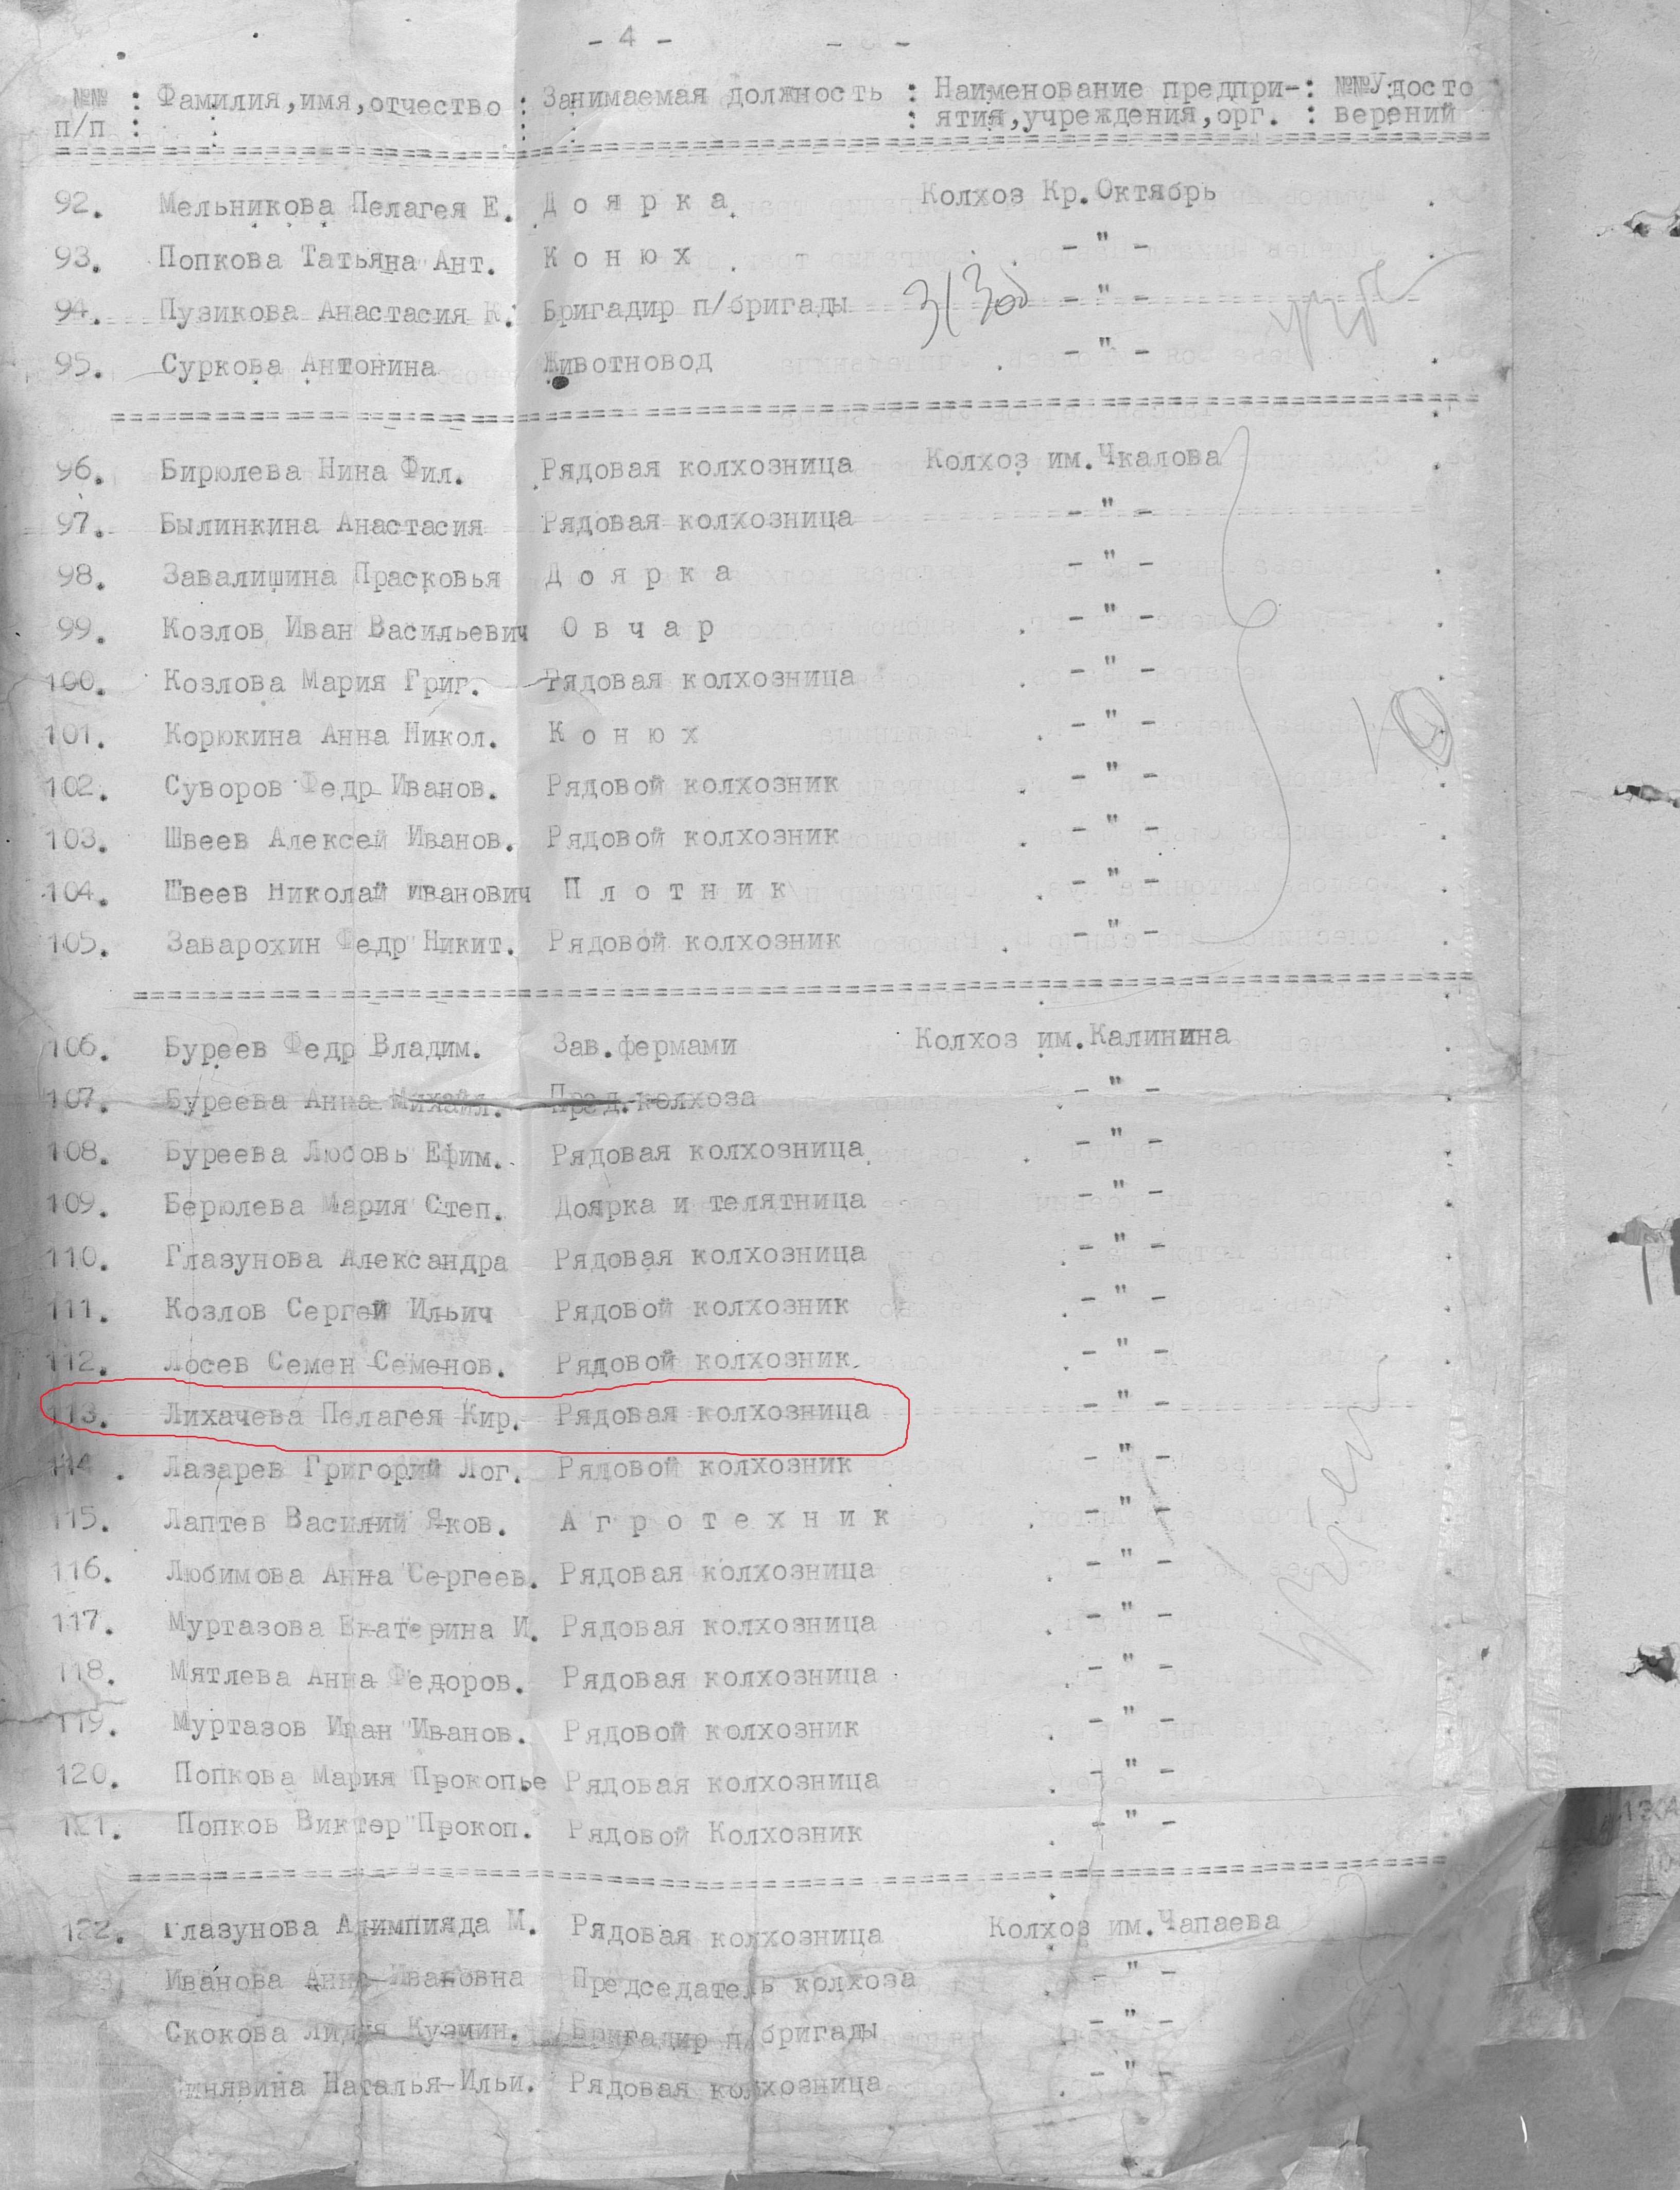 - 4 -
№№ : Фамилия,имя,отчество : Занимаемая должность : Наименование предпри-: №№Удосто
п/п : : : : ятия,учреждения,орг. : верений
92. Мельникова Пелагея Е. Доярка Колхоз Кр.Октябрь
93. Попкова Татьяна Ант. Конюх - " -
94. Пузикова Анастасия К. Бригадир п/бригады - " -
95. Суркова Антонина Животновод - " -
96. Бирюлева Нина Фил. Рядовая колхозница Колхоз им.Чкалова
97. Былинкина Анастасия Рядовая колхозница - " -
98. Завалишина Прасковья Доярка - " -
99. Козлов Иван Васильевич Овчар - " -
100. Козлова Мария Григ. Рядовая колхозница - " -
101. Корюкина Анна Никол. Конюх - " -
102. Суворов Федр Иванов. Рядовой колхозник - " -
103. Швеев Алексей Иванов. Рядовой колхозник - " -
104. Швеев Николай Иванович Плотник - " -
105. Заварохин Федр Никит. Рядовой колхозник - " -
106. Буреев Федр Владим. Зав.фермами Колхоз им.Калинина
107. Буреева Анна Михайл. Пред.колхоза - " -
108. Буреева Любовь Ефим. Рядовая колхозница - " -
109. Берюлева Мария Степ. Доярка и телятница - " -
110. Глазунова Александра Рядовая колхозница - " -
111. Козлов Сергей Ильич Рядовой колхозник - " -
112. Лосев Семен Семенов. Рядовой колхозник. - " -
113. Лихачева Пелагея Кир. Рядовая колхозница - " -
114. Лазарев Григорий Лог. Рядовой колхозник - " -
115. Лаптев Василий Яков. Агротехник - " -
116. Любимова Анна Сергеев. Рядовая колхозница - " -
117. Муртазова Екатерина И. Рядовая колхозница - " -
118. Мятлева Анна Федоров. Рядовая колхозница - " -
119. Муртазов Иван Иванов. Рядовой колхозник - " -
120. Попкова Мария Прокопье Рядовая колхозница - " -
121. Попков Виктор Прокоп. Рядовой Колхозник - " -
122. Глазунова Алимпияда М. Рядовая колхозница Колхоз им.Чапаева
Иванова Анна Ивановна Председатель колхоза - " -
Скокова Лидия Кузмин. Бригадир п/бригады - " -
инявина Наталья Ильи. Рядовая колхозница - " -